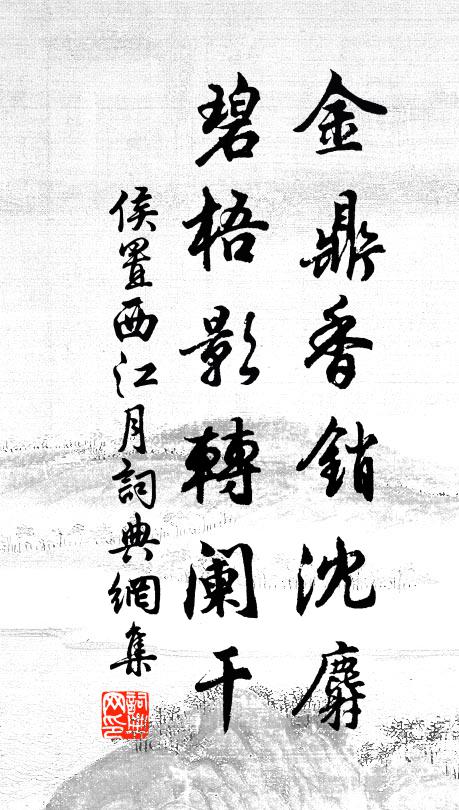 金鼎香銷沈麝
碧梧影轉闌干
侯置西江月詞典網集
詞典网印